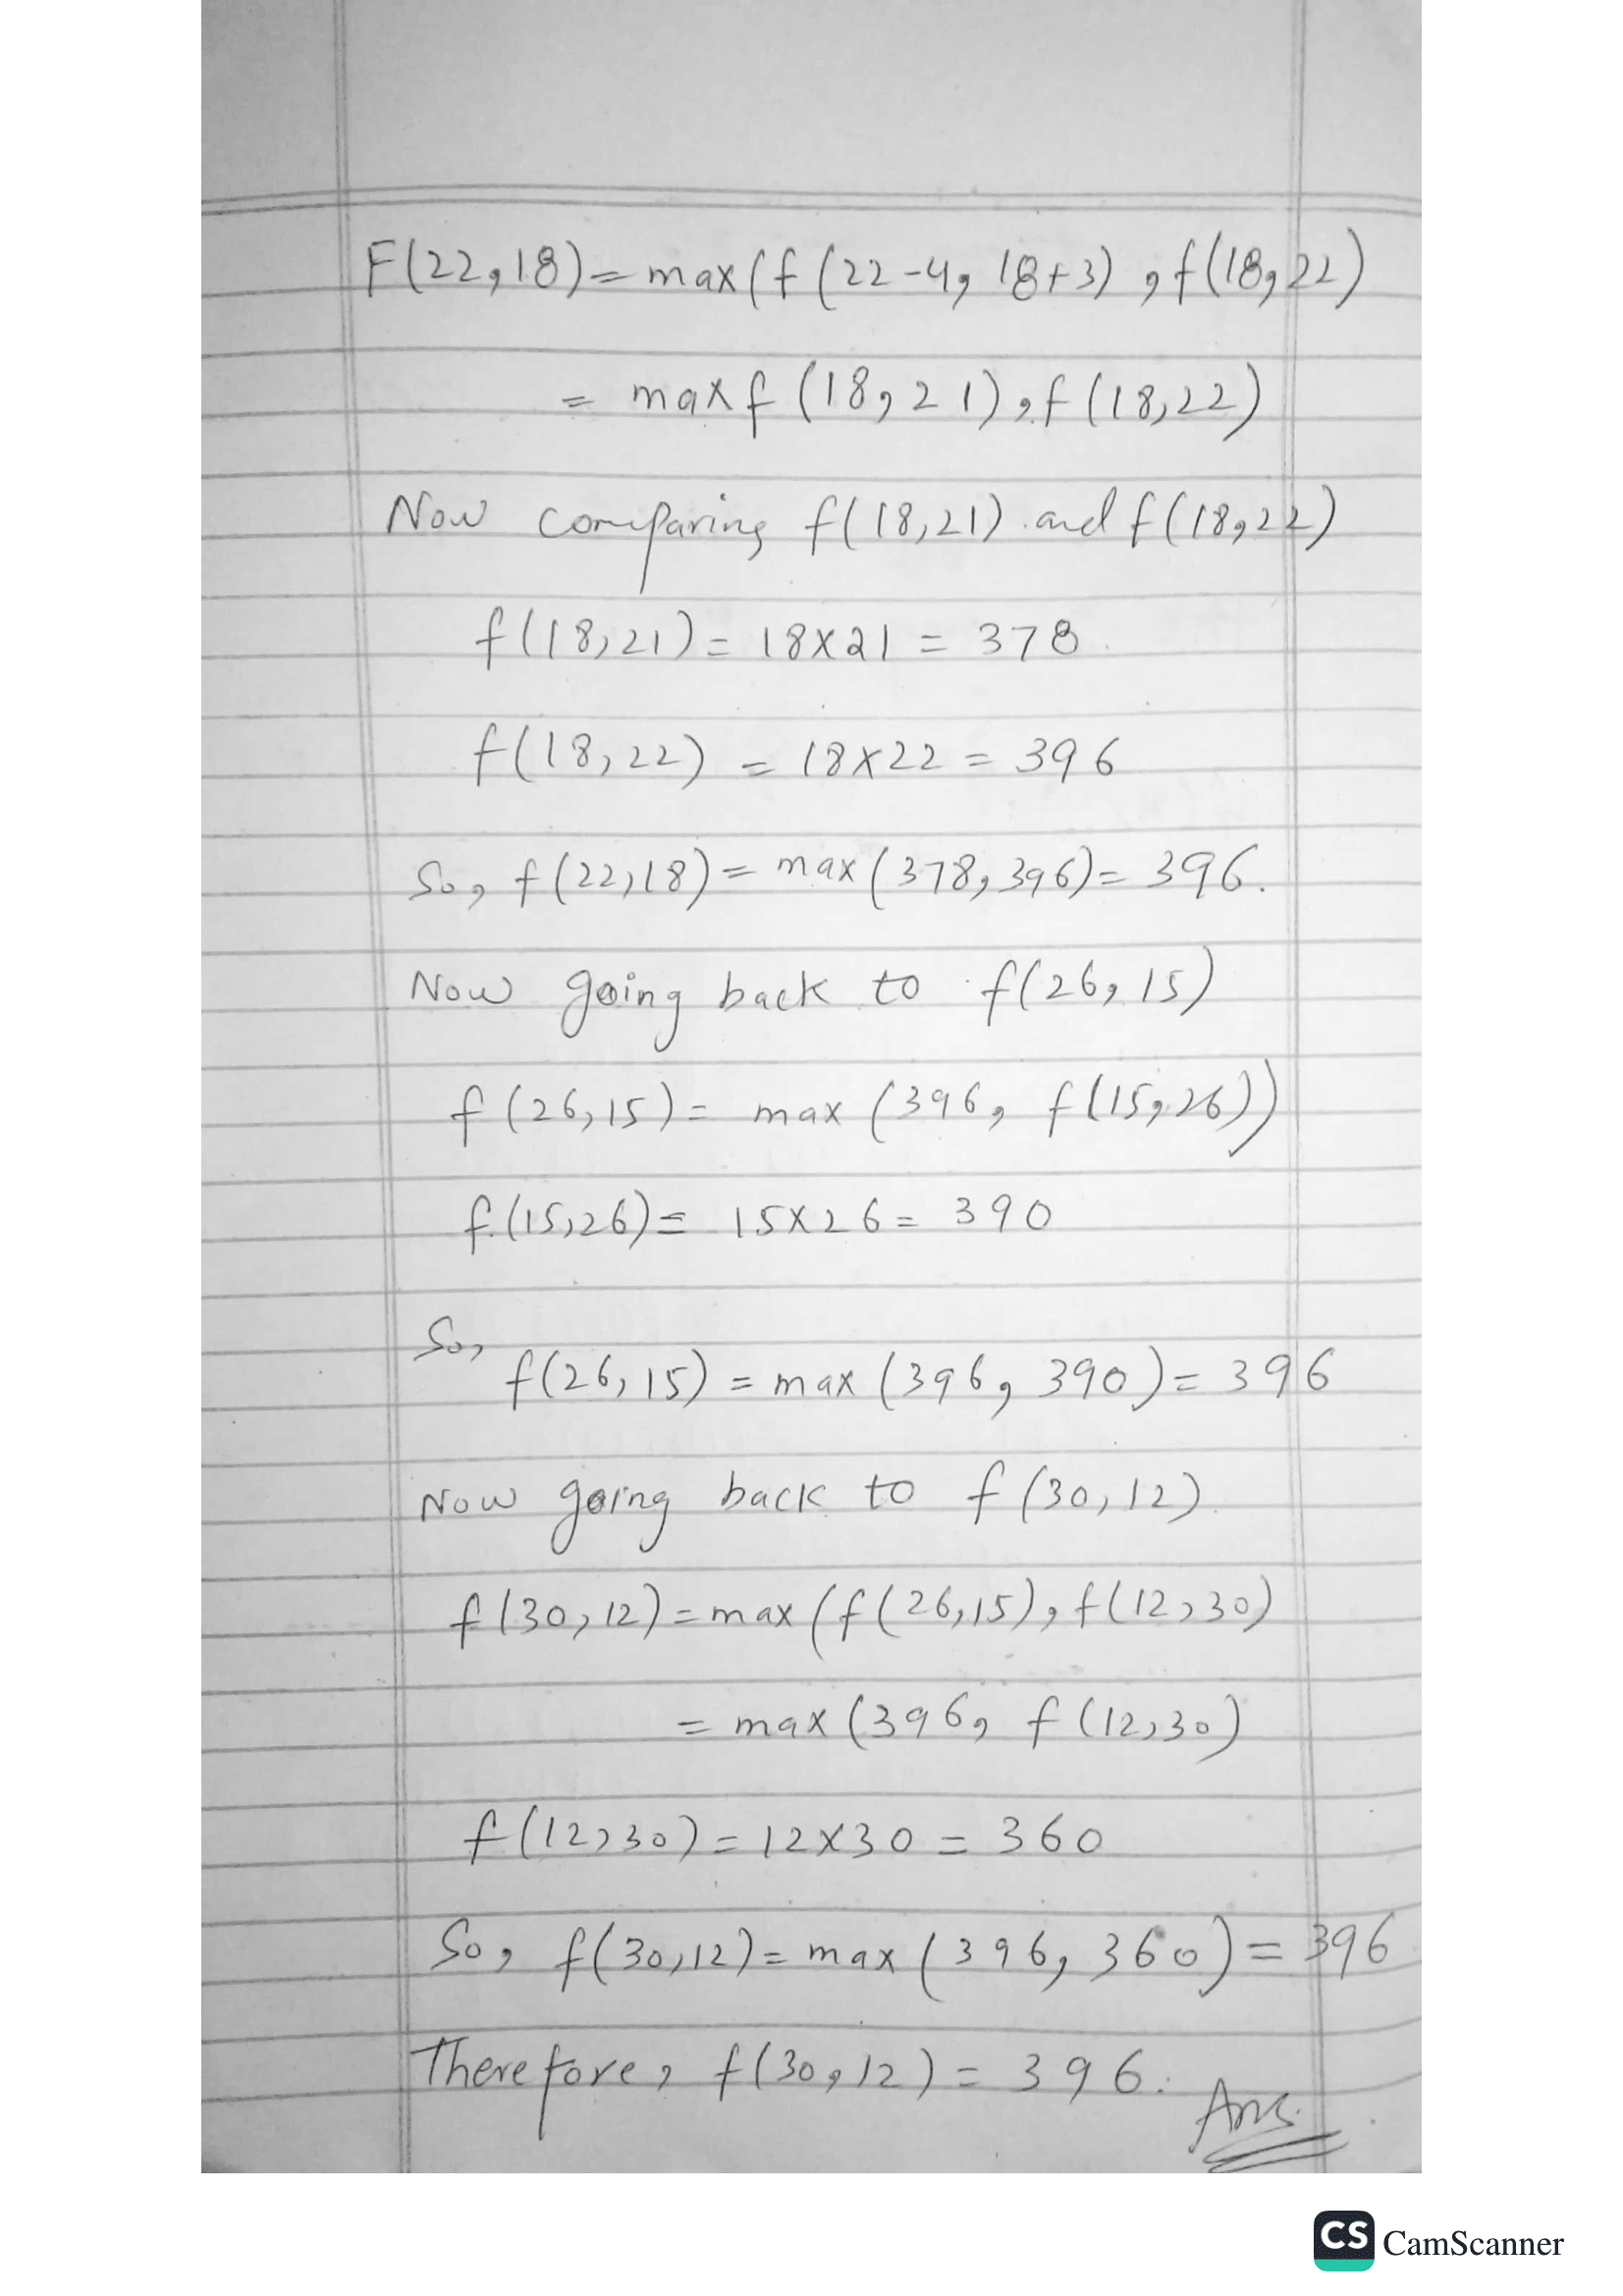 F(22,18)= max(f(22-4, 18+3) , f(18,22)
= max f (18,21), f(18,22)
Now comparing f(18,21) and f(18,22)
f(18,21) = 18x21 = 378
f(18,22) = 18x22 = 396
So, f(22,18) = max(378,396)= 396.
Now going back to f(26,15)
f(26,15)= max (396, f(15,26))
f(15,26)= 15x26= 390
So,
f(26,15) = max (396, 390)= 396
Now going back to f(30,12)
f(30,12)=max(f(26,15), f(12,30)
= max(396, f(12,30)
f(12,30)=12x30 = 360
So, f(30,12)= max (396, 360)= 396
Therefore, f(30,12) = 396.
Ans.
CS CamScanner